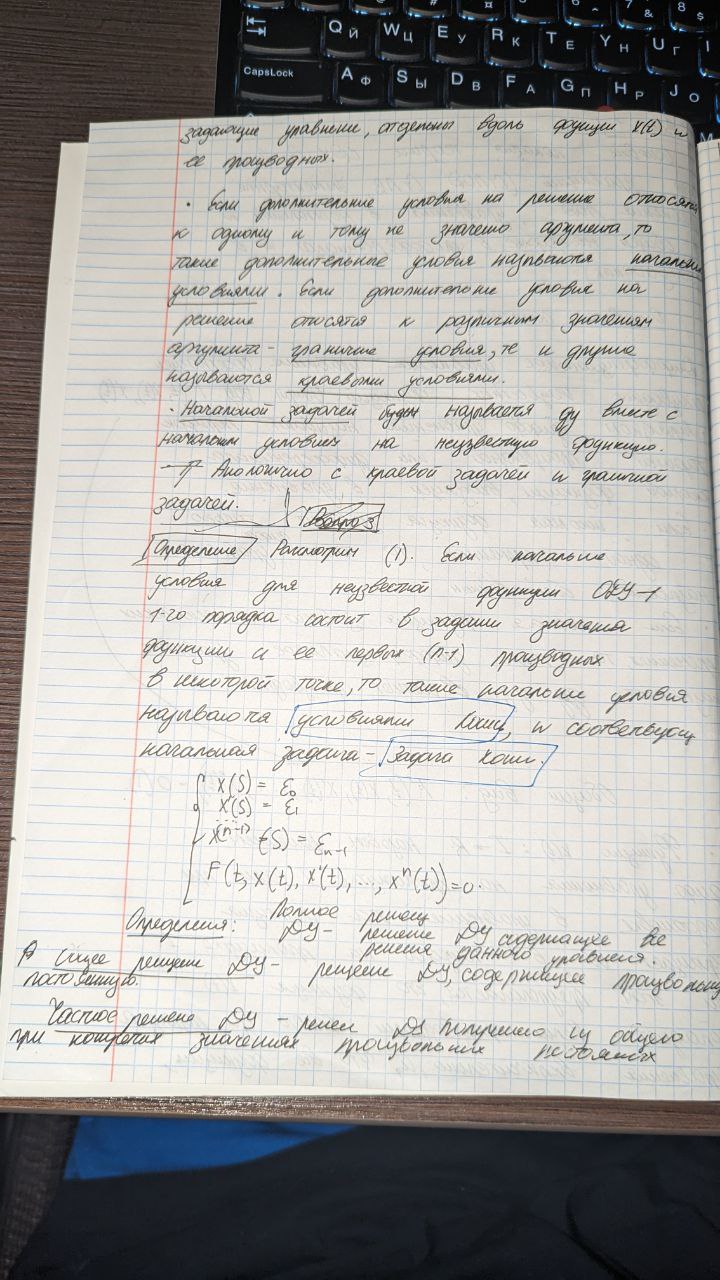 Q Й W Ц E У R К T Е Y Н U Г I
CapsLock A Ф S Ы D В F А G П H Р J О
задающие уравнение, отдельны вдоль функции x(t) и
ее производных.
· Если дополнительные условия на решение относятся
к одному и тому же значению аргумента, то
такие дополнительные условия называются начальн
условиями. Если дополнительные условия на
решение относятся к различным значениям
аргумента - граничные условия, те и другие
называются краевыми условиями.
· Начальной задачей будет называется ду вместе с
начальным условием на неизвестную функцию.
Аналогично с краевой задачей и граничной
задачей. Вопрос 3
Определение Рассмотрим (1). Если начальные
условия для неизвестной функции ОДУ-1
1-го порядка состоит в задании значения
функции и ее первых (n-1) производных
в некоторой точке, то такие начальные условия
называются условиями Коши, и соответствующ
начальная задача - Задача Коши.
x(S) = ε₀
x'(S) = ε₁
x⁽ⁿ⁻¹⁾(S) = εₙ₋₁
F(t, x(t), x'(t), ..., xⁿ(t)) = 0.
Полное решен
Определения: ДУ - решение ДУ содержащее все
решения данного уравнения.
Общее решение ДУ - решение ДУ, содержащее произвольную
постоянную.
Частное решение ДУ - решен ДУ получено из общего
при конкретных значениях произвольных постоянных